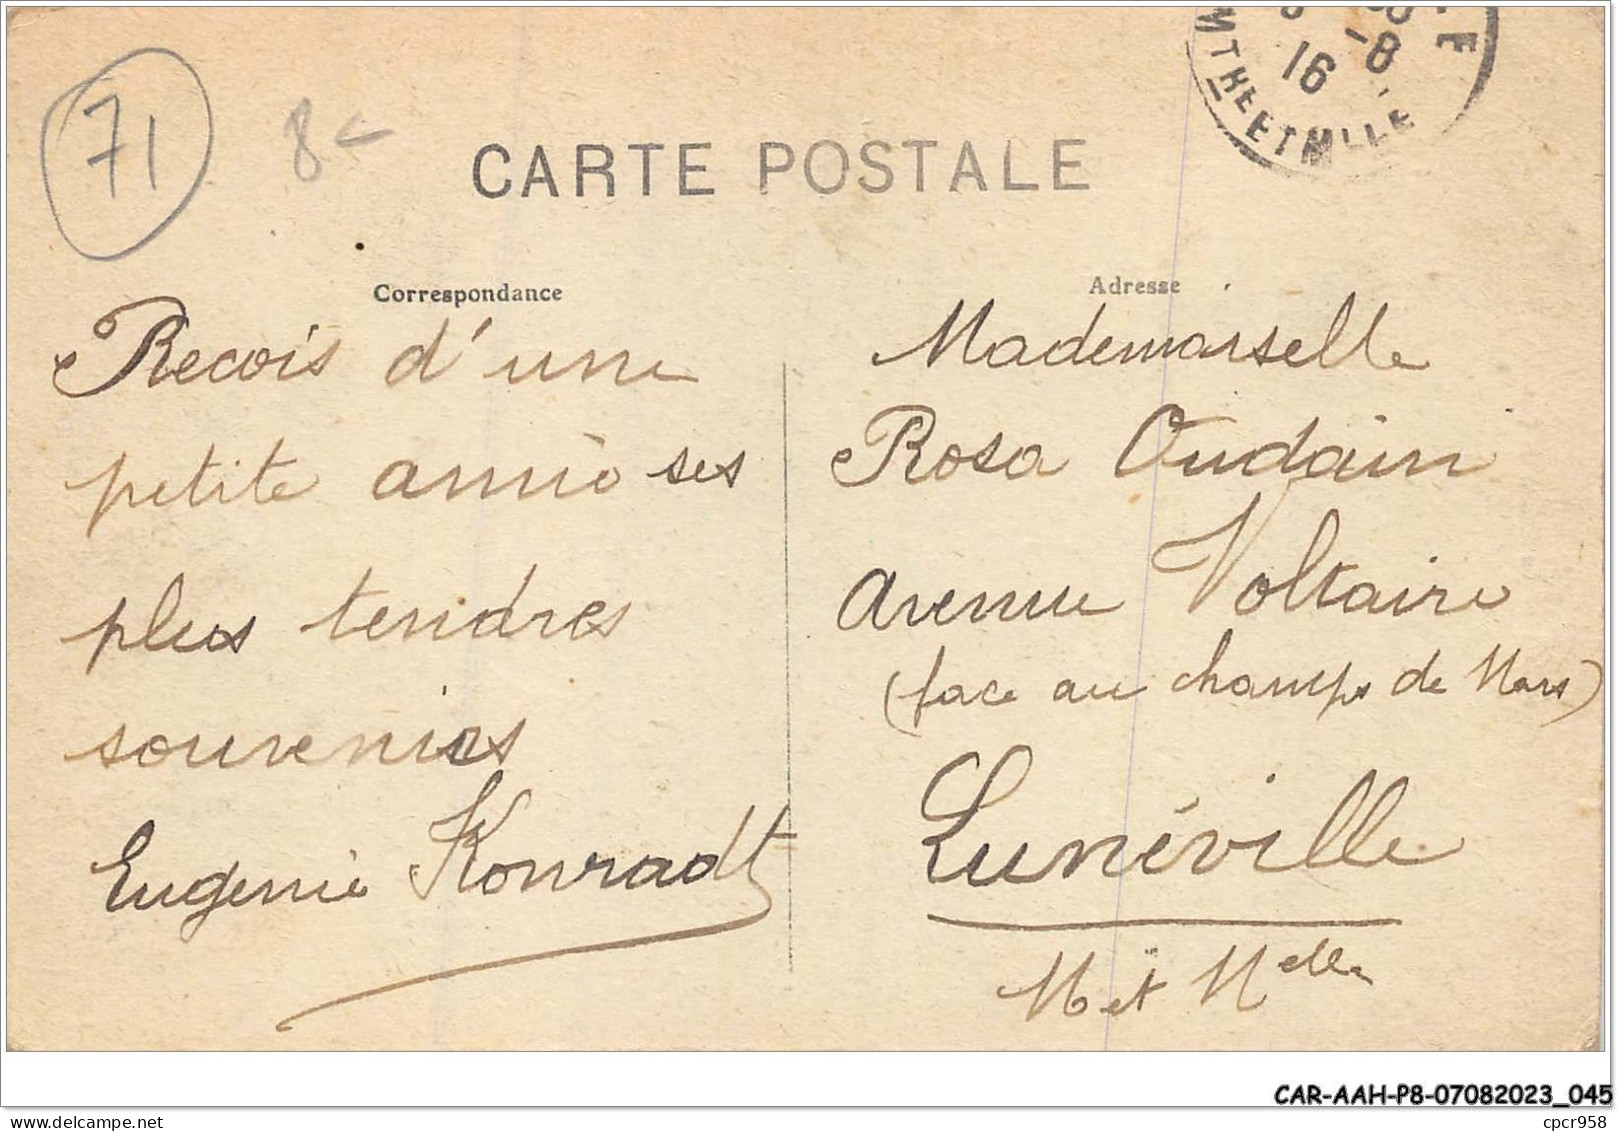 71
8
CARTE POSTALE
16 -8
MTHE ET MLLE
Correspondance
Recois d'une
petite amie ses
plus tendres
souvenirs
Eugenie Konradt
Adresse
Mademoiselle
Rosa Oudain
Avenue Voltaire
(face au champs de Mars)
Lunéville
M et Melle
CAR-AAH-P8-07082023_045
delcampe.net
cpcr958